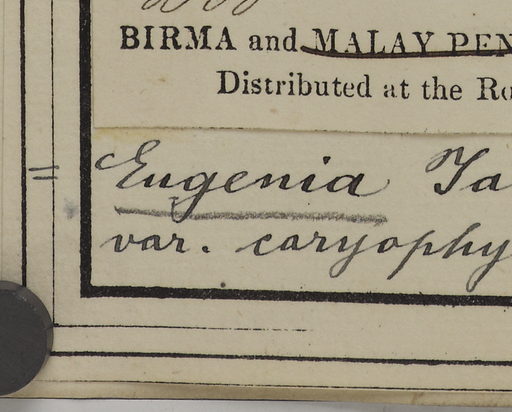 BIRMA and MALAY PEN
Distributed at the Ro
= Eugenia Ja
var. caryophy